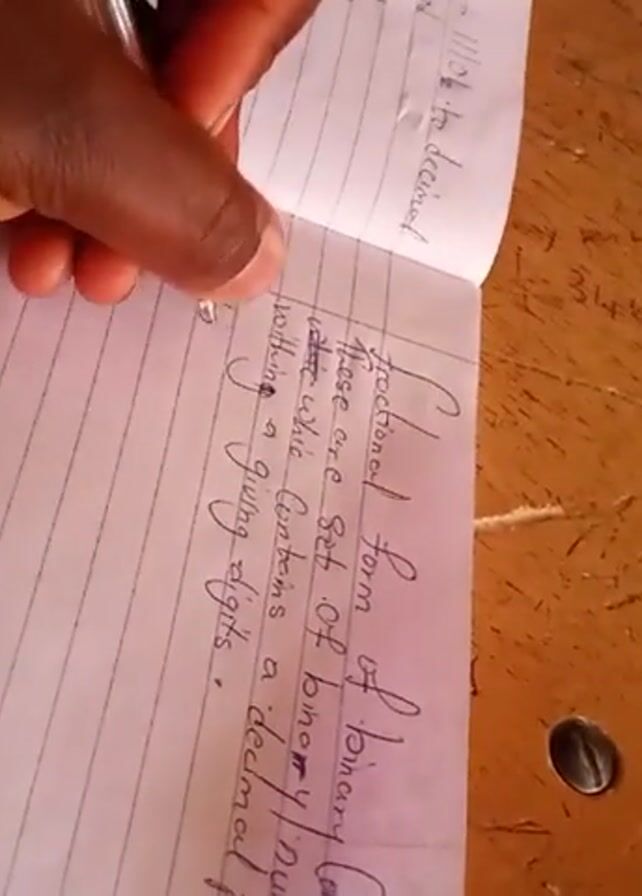 111012 to decimal
fractional form of binary
These are set of binary/nu
whic Contains a decimal
withing a giving digits.